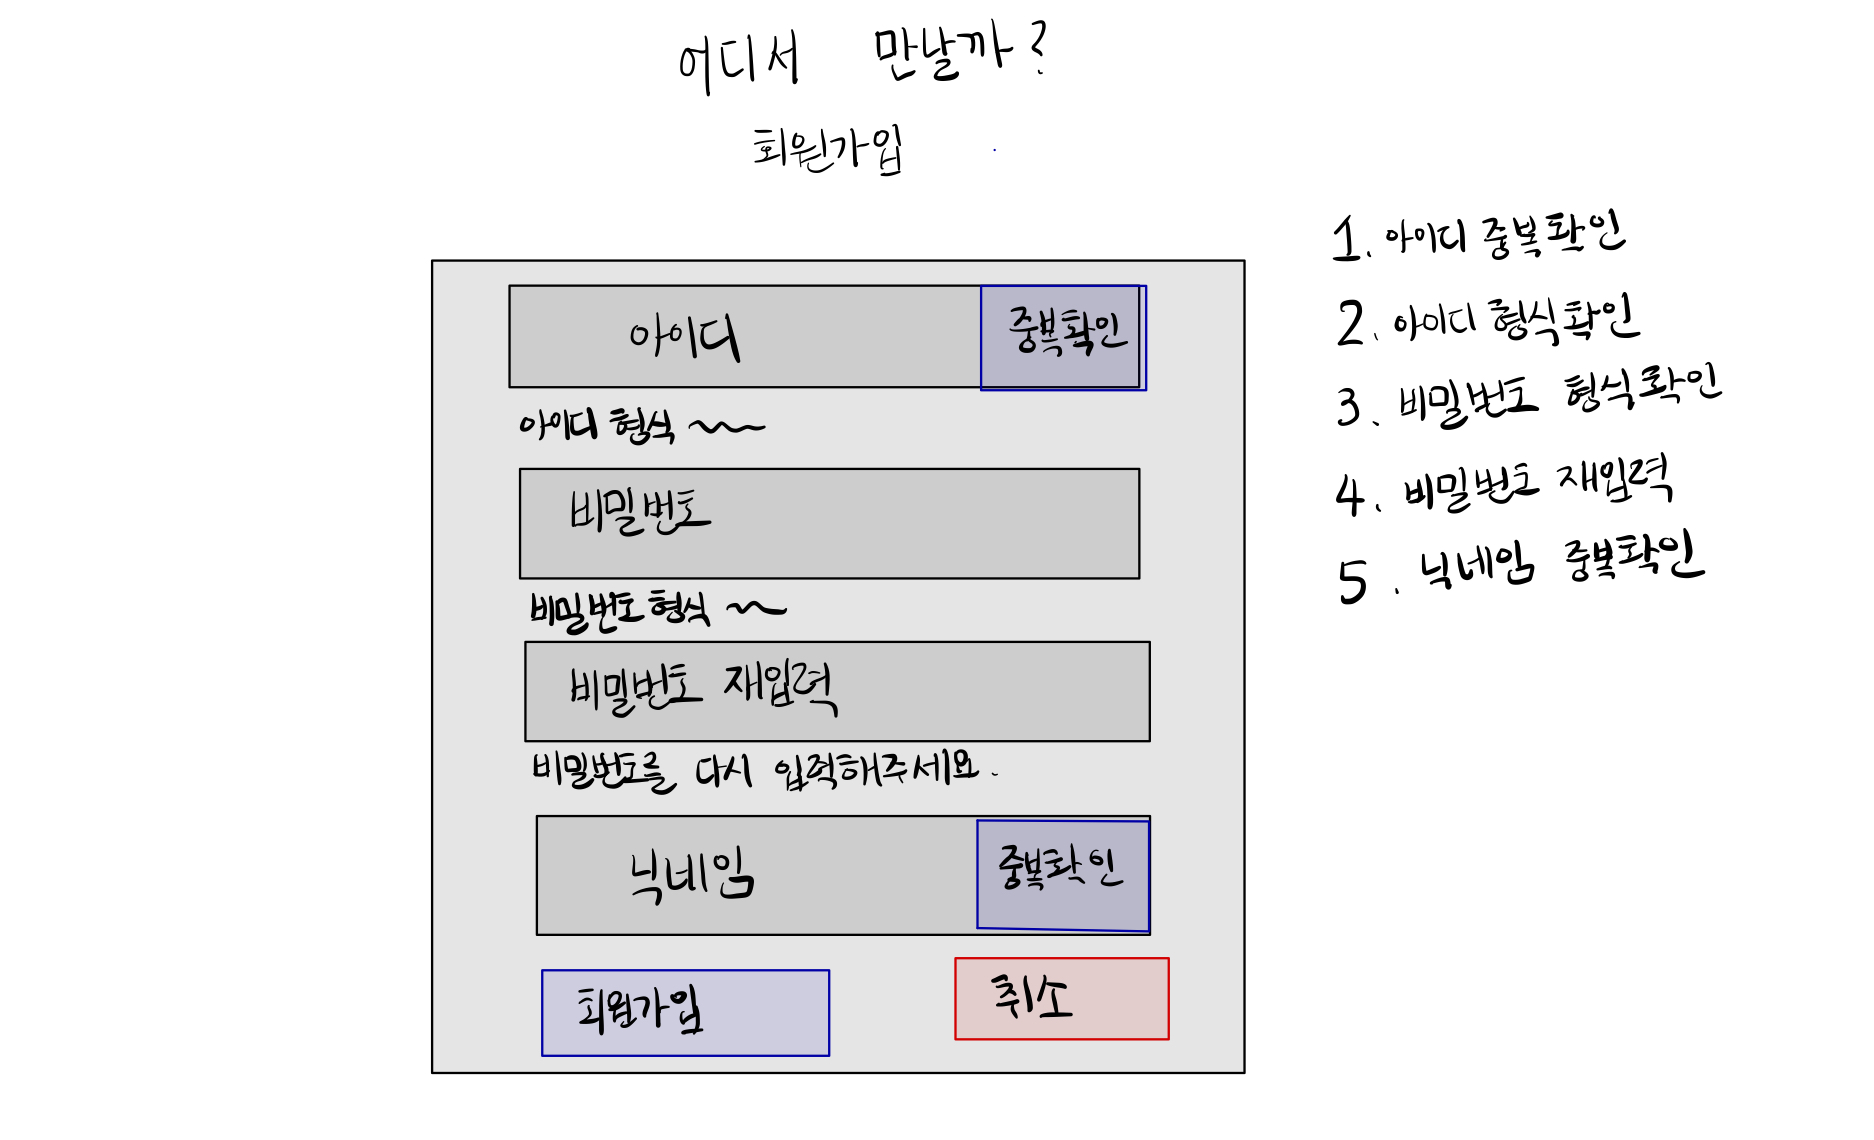 어디서 만날까?
회원가입
아이디 중복확인
아이디 형식 ~~
비밀번호
비밀번호 형식 ~~
비밀번호 재입력
비밀번호를 다시 입력해주세요.
닉네임 중복확인
회원가입 취소
1. 아이디 중복확인
2. 아이디 형식확인
3. 비밀번호 형식확인
4. 비밀번호 재입력
5. 닉네임 중복확인